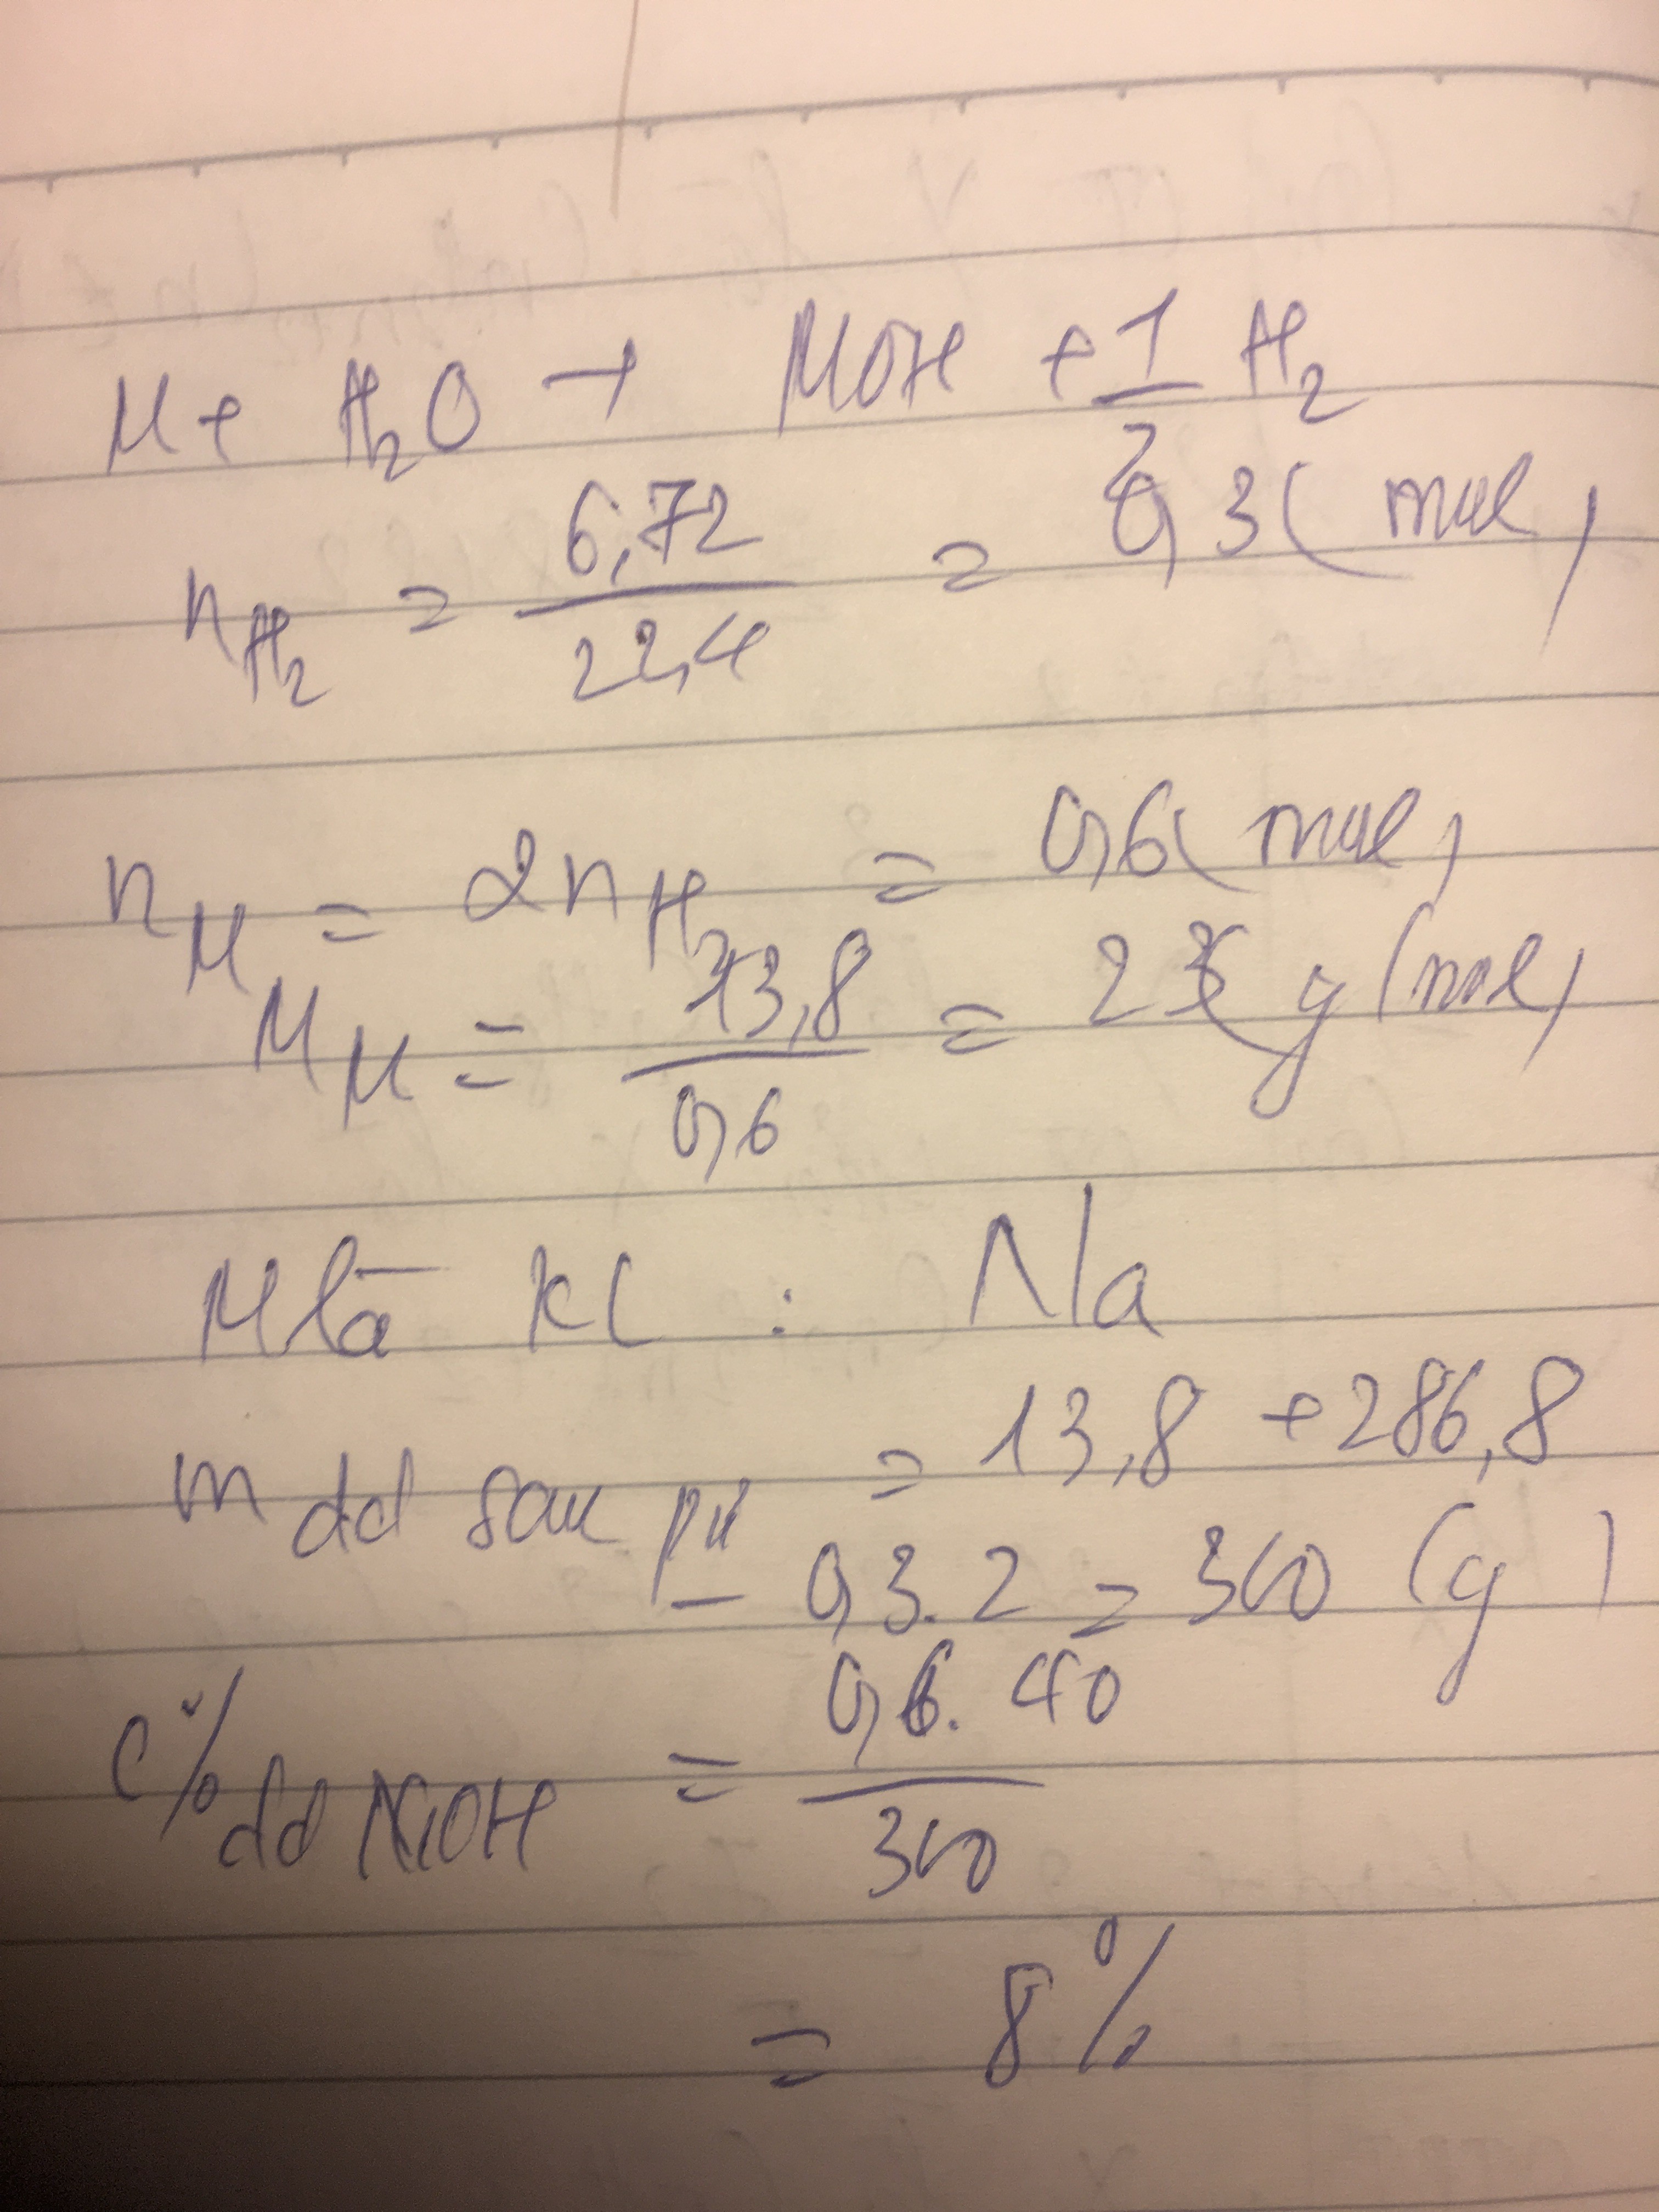 M + H₂O → MOH + 1/2 H₂
n H₂ = 6,72/22,4 = 0,3 (mol)
n M = 2n H₂ = 0,6 (mol)
M M = 13,8/0,6 = 23 (g/mol)
M là KL : Na
m dd sau pứ = 13,8 + 286,8
- 0,3.2 = 300 (g)
C% dd NaOH = 0,6.40/300
= 8%